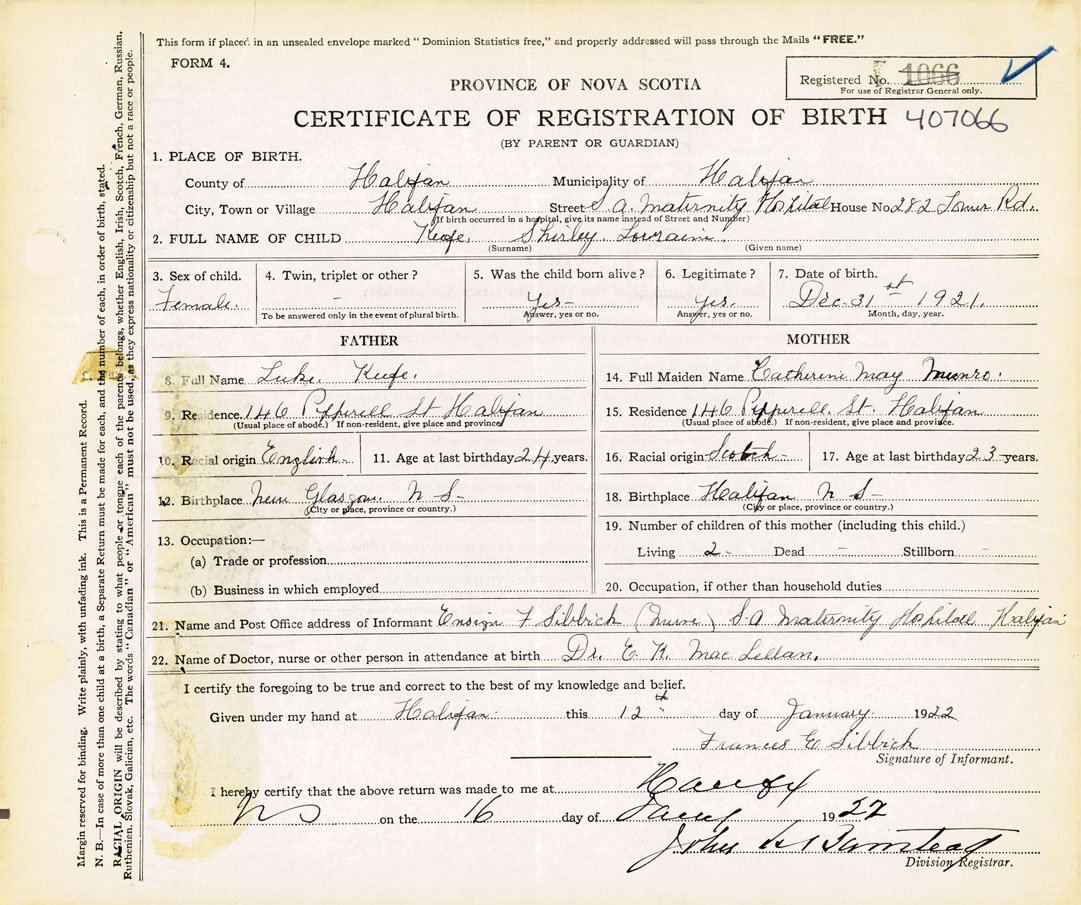 This form if placed in an unsealed envelope marked “Dominion Statistics free,” and properly addressed will pass through the Mails “FREE.”
FORM 4.
Registered No. 1066
For use of Registrar General only.
PROVINCE OF NOVA SCOTIA
CERTIFICATE OF REGISTRATION OF BIRTH 407066
(BY PARENT OR GUARDIAN)
1. PLACE OF BIRTH.
County of Halifax Municipality of Halifax
City, Town or Village Halifax Street S. A. Maternity Hospital House No. 282 Tower Rd.
(If birth occurred in a hospital, give its name instead of Street and Number)
2. FULL NAME OF CHILD Keefe, Shirley Lorraine.
(Surname) (Given name)
3. Sex of child. 4. Twin, triplet or other? 5. Was the child born alive? 6. Legitimate? 7. Date of birth.
Female. - Yes- Yes. Dec. 31st 1921.
To be answered only in the event of plural birth. Answer, yes or no. Answer, yes or no. Month, day, year.
FATHER
8. Full Name Luke Keefe.
9. Residence. 146 Pepperell St Halifax
(Usual place of abode.) If non-resident, give place and province
10. Racial origin English- 11. Age at last birthday 24 years.
12. Birthplace New Glasgow N S-
(City or place, province or country.)
13. Occupation:—
(a) Trade or profession
(b) Business in which employed
MOTHER
14. Full Maiden Name Catherine May Munro.
15. Residence 146 Pepperell. St. Halifax
(Usual place of abode.) If non-resident, give place and province.
16. Racial origin Scotch- 17. Age at last birthday 23 years.
18. Birthplace Halifax N S-
(City or place, province or country.)
19. Number of children of this mother (including this child.)
Living 2- Dead - Stillborn -
20. Occupation, if other than household duties
21. Name and Post Office address of Informant Ensign F Sibbick (Nurse) S. A Maternity Hospital Halifax
22. Name of Doctor, nurse or other person in attendance at birth Dr. E. K. MacLellan.
I certify the foregoing to be true and correct to the best of my knowledge and belief.
Given under my hand at Halifax this 12th day of January 1922
Frances E Sibbick
Signature of Informant.
I hereby certify that the above return was made to me at Halifax
NS on the 16 day of Jany 1922
John A Barnstead
Division Registrar.
Margin reserved for binding. Write plainly, with unfading ink. This is a Permanent Record.
N. B.—In case of more than one child at a birth, a Separate Return must be made for each, and the number of each, in order of birth, stated.
RACIAL ORIGIN will be described by stating to what people or tongue each of the parents belongs, whether English, Irish, Scotch, French, German, Russian,
Ruthenian, Slovak, Galician, etc. The words “Canadian” or “American” must not be used, as they express nationality or citizenship but not a race or people.